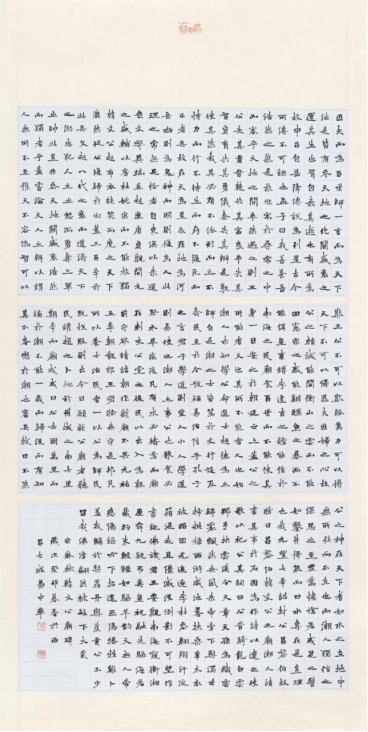 匹夫而為百世師一言而為天下
法是皆有以參天地之化關盛衰之
運其生也有自來其逝也有所為矣
故申呂自嶽降傅說為列星古今
所傳不可誣也孟子曰我善養吾
浩然之氣是氣也寓於尋常之中
而塞乎天地之間卒然遇之則王
公失其貴晉楚失其富良平失其
智賁育失其勇儀秦失其辯是孰
使之然哉其必有不依形而立不
恃力而行不待生而存不隨死而
亡者矣故在天為星辰在地為河
嶽幽則為鬼神而明則復為人此
理之常無足怪者自東漢以來道
喪文弊異端並起歷唐貞觀開元
之盛輔以房杜姚宋而不能救獨
韓文公起布衣談笑而麾之天下
靡然從公復歸於正蓋三百年於
此矣文起八代之衰而道濟天下
之溺忠犯人主之怒而勇奪三軍
之帥此豈非參天地關盛衰浩然
而獨存者乎蓋嘗論天人之辨以謂
人無所不至惟天不容偽智可以
欺王公不可以欺豚魚力可以得
天下不可以得匹夫匹婦之心故
公之精誠能開衡山之雲而不能
回憲宗之惑能馴鱷魚之暴而不
能弭皇甫鎛李逢吉之謗能信於
南海之民廟食百世而不能使其
身一日安於朝廷之上蓋公之所
能者天也其所不能者人也始
潮人未知學公命進士趙德為之
師自是潮之士皆篤於文行延及
齊民至於今號稱易治信乎孔子
之言君子學道則愛人小人學道
則易使也潮人之事公也飲食必
祭水旱疾疫凡有求必禱焉而廟
在刺史公堂之後民以出入為艱
前守欲請諸朝作新廟不果元祐
五年朝散郎王君滌來守是邦凡
所以養士治民者一以公為師民
既悅服則出令曰願新公廟者聽
民讙趨之卜地於州城之南七里
期年而廟成或曰公去國萬里而
謫於潮不能一歲而歸沒而有知
其不眷戀於潮也審矣軾曰不然
公之神在天下者如水之在地中
無所往而不在也而潮人獨信之
深思之至焄蒿悽愴若或見之譬
如鑿井得泉而曰水專在是豈理
也哉元豐七年詔封公昌黎伯故
榜曰昌黎伯韓文公之廟潮人請
書其事於石因為作詩以遺之使
歌以祀公其詞曰公昔騎龍白雲
鄉手抉雲漢分天章天孫為織雲
錦裳飄然乘風來帝旁下與濁世
掃秕糠西遊咸池略扶桑草木衣
被昭回光追逐李杜參翱翔汗流
籍湜走且僵滅沒倒影不可望作
書詆佛譏君王要觀南海窺衡湘
歷舜九嶷弔英皇祝融先驅海若
藏約束蛟鱷如驅羊鈞天無人帝
悲傷謳吟下招遣巫陽犦牲雞卜
羞我觴於粲荔丹與蕉黃公不少
留我涕滂翩然被髮下大荒
韓文公廟碑
歲次癸卯暮春於西
昌古城